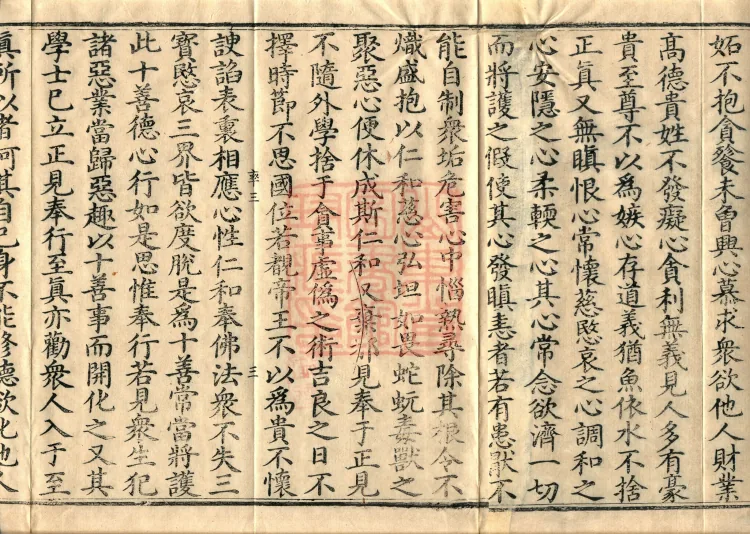 妬不抱貪餮未曾興心慕求衆欲他人財業
高德貴姓不發癡心貪利無義見人多有豪
貴至尊不以爲嫉心存道義猶魚依水不捨
正真又無瞋恨心常懷慈愍哀之心調和之
心安隱之心柔輭之心其心常念欲濟一切
而將護之假使其心發瞋恚者若有患猒不
能自制衆垢危害心中惱熱尋除其根令不
熾盛抱以仁和慈心弘坦如畏蛇蚖毒獸之
聚惡心便休成斯仁和又棄邪見奉于正見
不隨外學捨于貪事虛僞之術吉良之日不
擇時節不思國位若觀帝王不以爲貴不懷
諛諂表裏相應心性仁和奉佛法衆不失三
寶愍哀三界皆欲度脫是爲十善常當將護
此十善德心行如是思惟奉行若見衆生犯
諸惡業當歸惡趣以十善事而開化之又其
學士已立正見奉行至真亦勸衆人入于至
真所以者何其自己身不能修德欲化他人
三